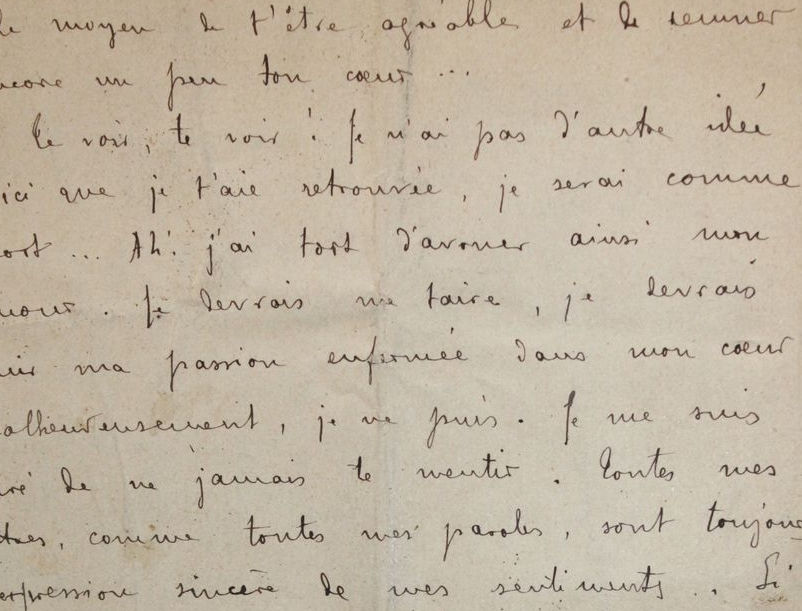 le moyen de t'être agréable et de remuer
ncore un peu ton cœur ...
Te voir, te voir ! Je n'ai pas d'autre idée
ici que je t'aie retrouvée, je serai comme
ort ... Ah ! j'ai tort d'avouer ainsi mon
mour. Je devrais me taire, je devrais
nir ma passion enfermée dans mon cœur
alheureusement, je ne puis. Je me suis
uré de ne jamais te mentir. Toutes mes
ttres, comme toutes mes paroles, sont toujours
expression sincère de mes sentiments. . Si